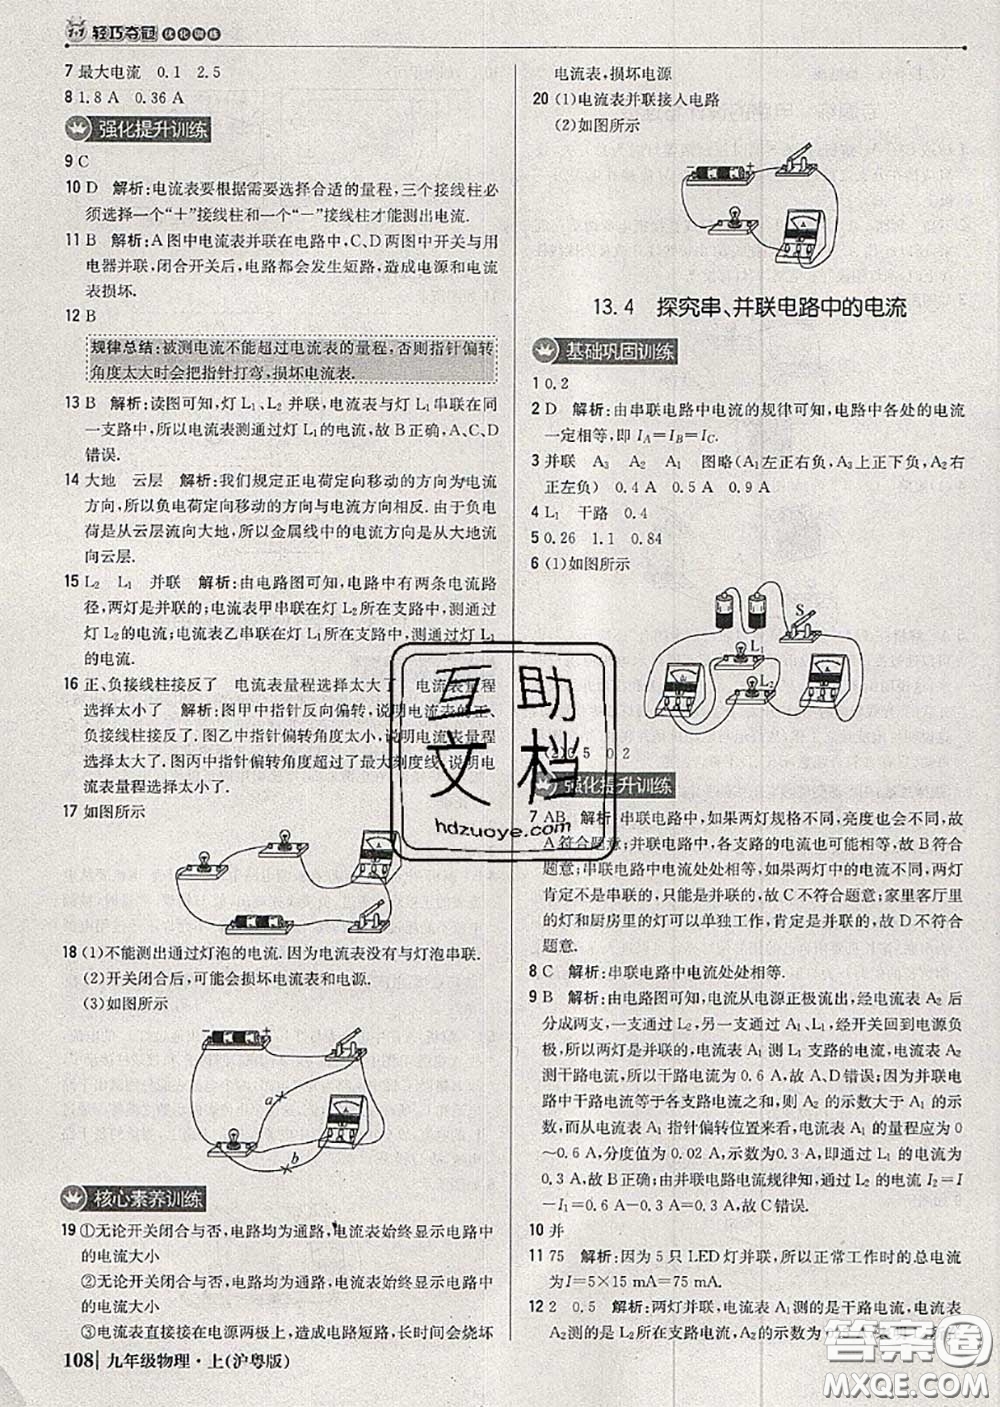 轻巧夺冠 优化训练
7 最大电流 0.1 2.5
8 1.8 A 0.36 A
强化提升训练
9 C
10 D 解析:电流表要根据需要选择合适的量程,三个接线柱必
须选择一个“+”接线柱和一个“-”接线柱才能测出电流.
11 B 解析:A图中电流表并联在电路中,C、D两图中开关与用
电器并联,闭合开关后,电路都会发生短路,造成电源和电流
表损坏.
12 B
规律总结:被测电流不能超过电流表的量程,否则指针偏转
角度太大时会把指针打弯,损坏电流表.
13 B 解析:读图可知,灯 L₁、L₂ 并联,电流表与灯 L₁ 串联在同
一支路中,所以电流表测通过灯 L₁的电流,故 B正确,A、C、D
错误.
14 大地 云层 解析:我们规定正电荷定向移动的方向为电流
方向,所以负电荷定向移动的方向与电流方向相反.由于负电
荷是从云层流向大地,所以金属线中的电流方向是从大地流
向云层.
15 L₂ L₁ 并联 解析:由电路图可知,电路中有两条电流路
径,两灯是并联的;电流表甲串联在灯 L₂所在支路中,测通过
灯 L₂的电流;电流表乙串联在灯 L₁所在支路中,测通过灯 L₁
的电流.
16 正、负接线柱接反了 电流表量程选择太大了 电流表量程
选择太小了 解析:图甲中指针反向偏转,说明电流表的正、
负接线柱接反了.图乙中指针偏转角度太小,说明电流表量程
选择太大了.图丙中指针偏转角度超过了最大刻度线,说明电
流表量程选择太小了.
17 如图所示
18 (1)不能测出通过灯泡的电流.因为电流表没有与灯泡串联.
(2)开关闭合后,可能会损坏电流表和电源.
(3)如图所示
− +
a
b
核心素养训练
19 ①无论开关闭合与否,电路均为通路,电流表始终显示电路中
的电流大小
②无论开关闭合与否,电路均为通路,电流表始终显示电路中
的电流大小
③电流表直接接在电源两极上,造成电路短路,长时间会烧坏
108 九年级物理·上(沪粤版)
电流表,损坏电源
20 (1)电流表并联接入电路
(2)如图所示
− +
13.4 探究串、并联电路中的电流
基础巩固训练
1 0.2
2 D 解析:由串联电路中电流的规律可知,电路中各处的电流
一定相等,即 I_A=I_B=I_C.
3 并联 A₃ A₂ A₁ 图略(A₁左正右负,A₃上正下负,A₂右
正左负) 0.4 A 0.5 A 0.9 A
4 L₁ 干路 0.4
5 0.26 1.1 0.84
6 (1)如图所示
S
L₁
L₂
(2)0.5 0.2
强化提升训练
7 AB 解析:串联电路中,如果两灯规格不同,亮度也会不同,故
A符合题意;并联电路中,各支路的电流也可能相等,故 B符合
题意;串联电路中电流处处相等,如果两灯中的电流不同,两灯
肯定不是串联的,只能是并联的,故 C不符合题意;家里客厅里
的灯和厨房里的灯可以单独工作,肯定是并联的,故 D不符合
题意.
8 C 解析:串联电路中电流处处相等.
9 B 解析:由电路图可知,电流从电源正极流出,经电流表 A₂ 后
分成两支,一支通过 L₂,另一支通过 A₁、L₁,经开关回到电源负
极,所以两灯是并联的;电流表 A₁ 测 L₁ 支路的电流,电流表 A₂
测干路电流,所以干路电流为 0.6 A,故 A、D错误;因为并联电
路中干路电流等于各支路电流之和,则 A₂ 的示数大于 A₁ 的示
数,而从电流表 A₁ 指针偏转位置来看,电流表 A₁ 的量程应为 0
~0.6 A,分度值为 0.02 A,示数为0.3 A,即通过 L₁ 的电流为
0.3 A,故 B正确;根据并联电路电流规律,通过 L₂ 的电流 I₂=I-
I₁=0.6 A-0.3 A=0.3 A,故 C错误.
10 并
11 75 解析:因为 5 只 LED灯并联,所以正常工作时的总电流
为 I=5×15 mA=75 mA.
12 2 0.5 解析:两灯并联,电流表 A₁测的是干路电流,电流表
A₂测的是灯 L₂所在支路的电流,
互助文档
hdzuoye.com
答案圈
MXQE.COM